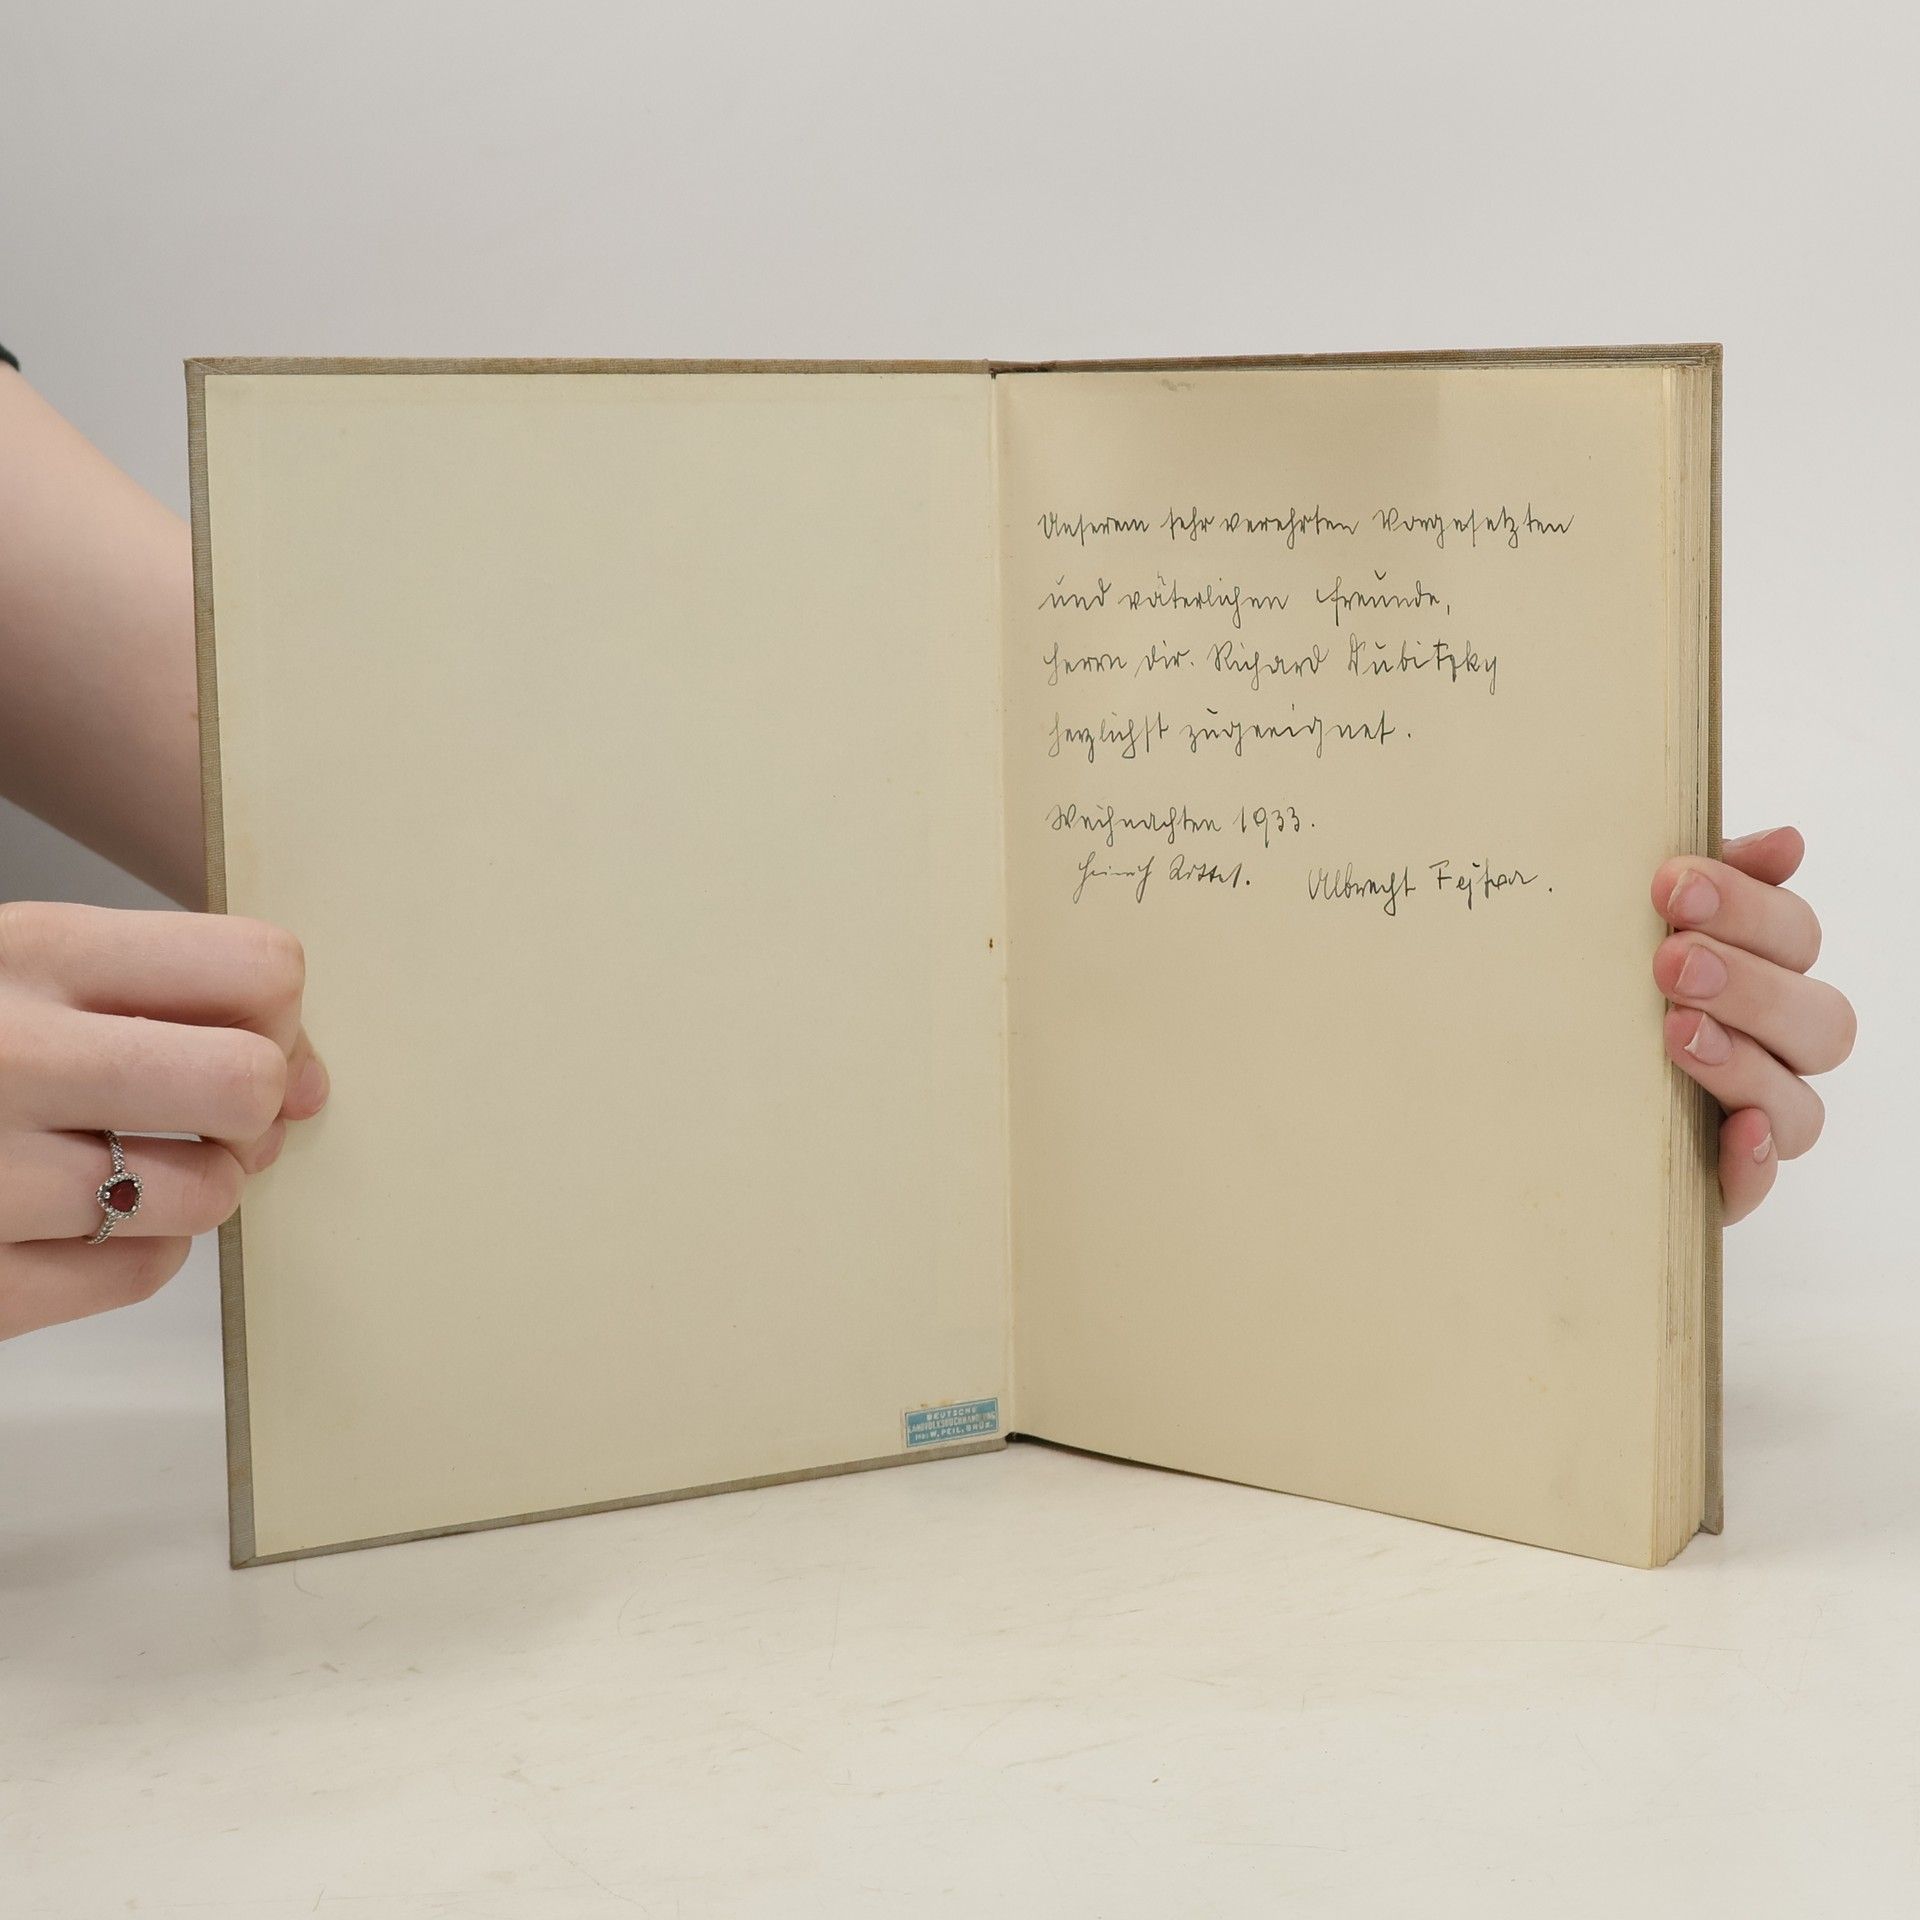 Unserem sehr verehrten Vorgesetzten
und väterlichen Freunde,
Herrn Dir. Richard Dubitzky
herzlichst zugeeignet.
Weihnachten 1933.
Heinrich Albrecht
DEUTSCHE
LANDVOLKSBUCHHANDLUNG
W. PEIL, BRÜX.